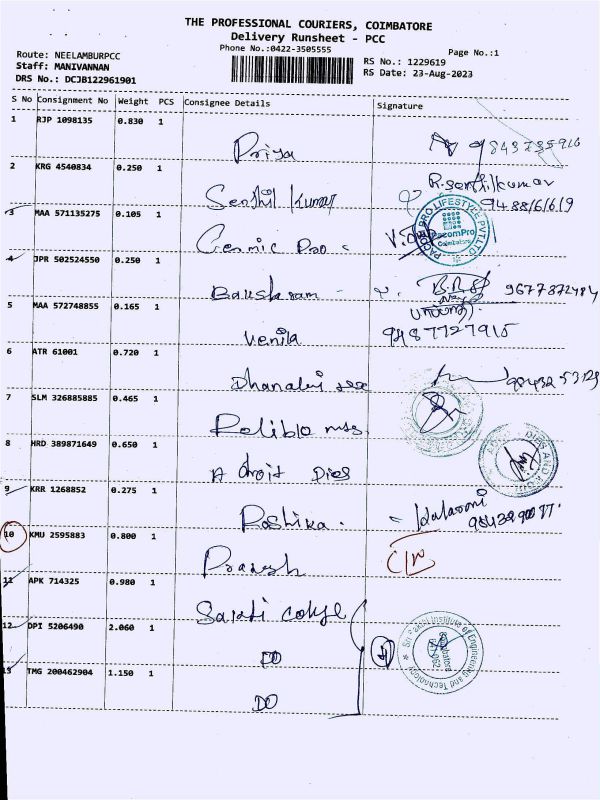 THE PROFESSIONAL COURIERS, COIMBATORE
Delivery Runsheet - PCC
Phone No.:0422-3505555
Page No.:1
Route: NEELAMBURPCC
Staff: MANIVANNAN
DRS No.: DCJB122961901
RS No.: 1229619
RS Date: 23-Aug-2023
S No Consignment No Weight PCS Consignee Details Signature
1 RJP 1098135 0.830 1
Priya
2 KRG 4540834 0.250 1
Senthil Kumar R.senthilkumar
3 MAA 571135275 0.105 1
PacomPro
Coimbatore
4 JPR 502524550 0.250 1
9677872484
5 MAA 572748855 0.165 1
Venila 9487727915
6 ATR 61001 0.720 1
7 SLM 326885885 0.465 1
8 HRD 389871649 0.650 1
A droit Dies
9 KRR 1268852 0.275 1
Rashika.
10 KMU 2595883 0.800 1
Pradesh
11 APK 714325 0.980 1
12 DPI 5206490 2.060 1
DO
13 TMG 200462904 1.150 1
DO